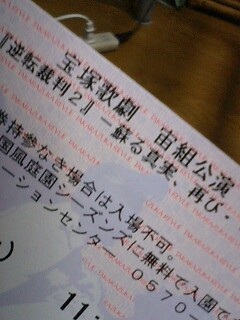 宝塚歌劇 宙組公演
『逆転裁判2』―蘇る真実、再び・
券持参なき場合は入場不可。
国風庭園シーズンズに無料で入園で
ーションセンター 0570-
11:
TAKARAZUKA REVUE